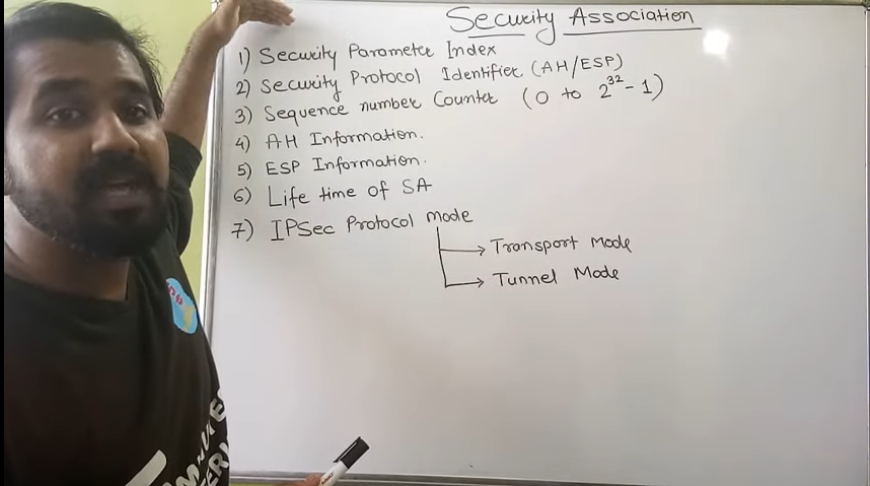 Security Association
1) Security Parameter Index
2) Security Protocol Identifier (AH/ESP)
3) Sequence number Counter (0 to 2³²-1)
4) AH Information.
5) ESP Information.
6) Life time of SA
7) IPSec Protocol mode
→ Transport Mode
→ Tunnel Mode